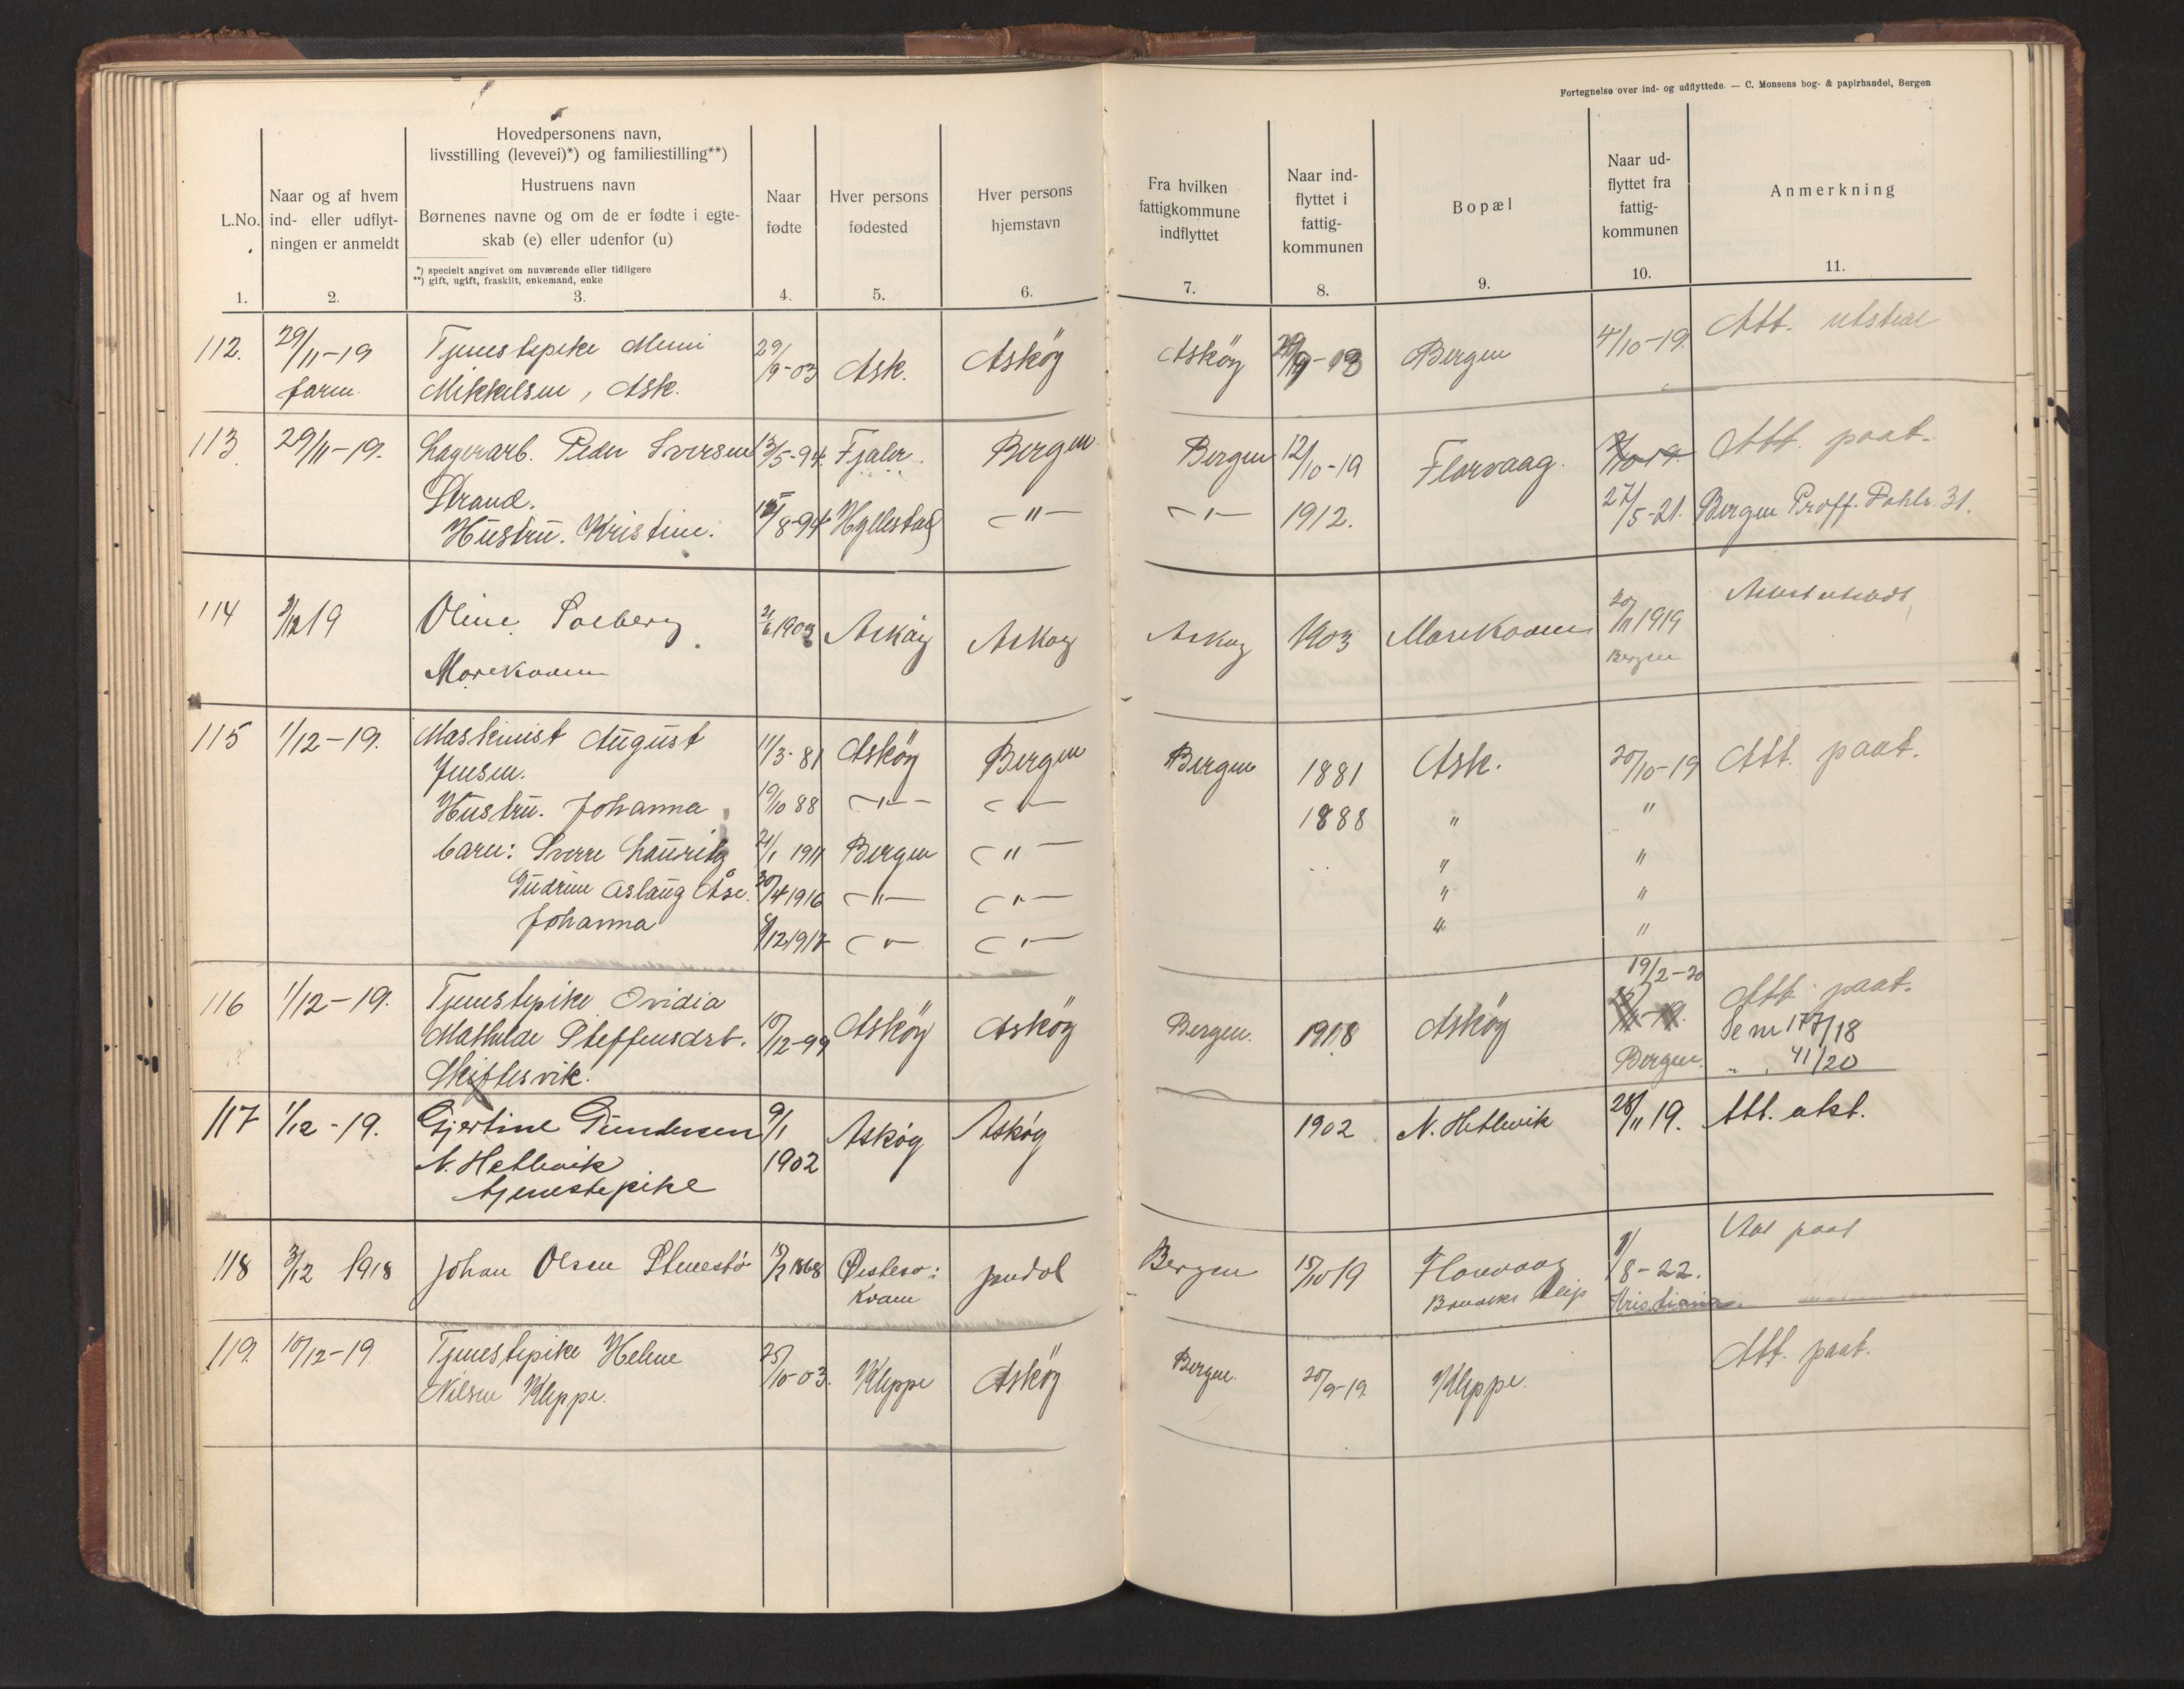 Fortegnelse over ind- og udflyttede. — C. Monsens bog- & papirhandel, Bergen
L.No.
1.
Naar og af hvem
ind- eller udflyt-
ningen er anmeldt
2.
Hovedpersonens navn,
livsstilling (levevei)*) og familiestilling**)
Hustruens navn
Børnenes navne og om de er fødte i egte-
skab (e) eller udenfor (u)
*) specielt angivet om nuværende eller tidligere
**) gift, ugift, fraskilt, enkemand, enke
3.
Naar
fødte
4.
Hver persons
fødested
5.
Hver persons
hjemstavn
6.
Fra hvilken
fattigkommune
indflyttet
7.
Naar ind-
flyttet i
fattig-
kommunen
8.
Bopæl
9.
Naar ud-
flyttet fra
fattig-
kommunen
10.
Anmerkning
11.
112. 29/11-19 Tjenestepike 29/9-03 Ask. Asköy Asköy Bergen 4/10-19. Att. utsted
Mikkelsen, Ask.
113 29/11-19. Lagerarb. Peder Iversen 13/5-94. Fjaler. Bergen Bergen 12/10-19 Florvaag. Att. paat.
Strand.
Hustru. Kristine. /8-94 Hyllestad -"- -"- 1912. 27/5-21. Bergen Proff. Dahls. 31.
114 /12 19 Oline Solberg 1903 Askøy Askøy Askøy 1903 20/11 1919
Bergen
115 1/12-19. Maskinist August 11/3-81 Asköy Bergen Bergen 1881 Ask. 20/10-19 Att. paat.
Jensen.
Hustru. Johanna 19/10 88 -"- -"- 1888 " "
barn: Sverre Lauritz 21/1 1911 Bergen -"- " "
Gudrun Aslaug Åse. 30/4 1916 -"- -"- " "
Johanna /12 191 -"- -"- " "
116 1/12-19. Tjenestepike Ovidia 19/2-20
Mathilde Steffensdrt. 10/12-99 Asköy Asköy Bergen. 1918 Asköy Att. paat.
Skiftesvik. Bergen. Se nr 177/18
" " 41/20
117 1/12-19. Gjertine Gundersen 9/1 Askøy Askøy 1902 N. Hetlevik 28/11 19. Att. utst.
N. Hetlevik 1902
tjenestepike
118 3/12 1918 Johan Olsen Stenestø 1868 Bergen 15/10 19 Florvaag 1/8-22. Att paat
Kvam Kristiania.
119. 10/12-19 Tjenestepike Helene 25/10-03. Kleppe Asköy Bergen. 20/9-19. Kleppe. Att. paat.
Nilsen Kleppe.